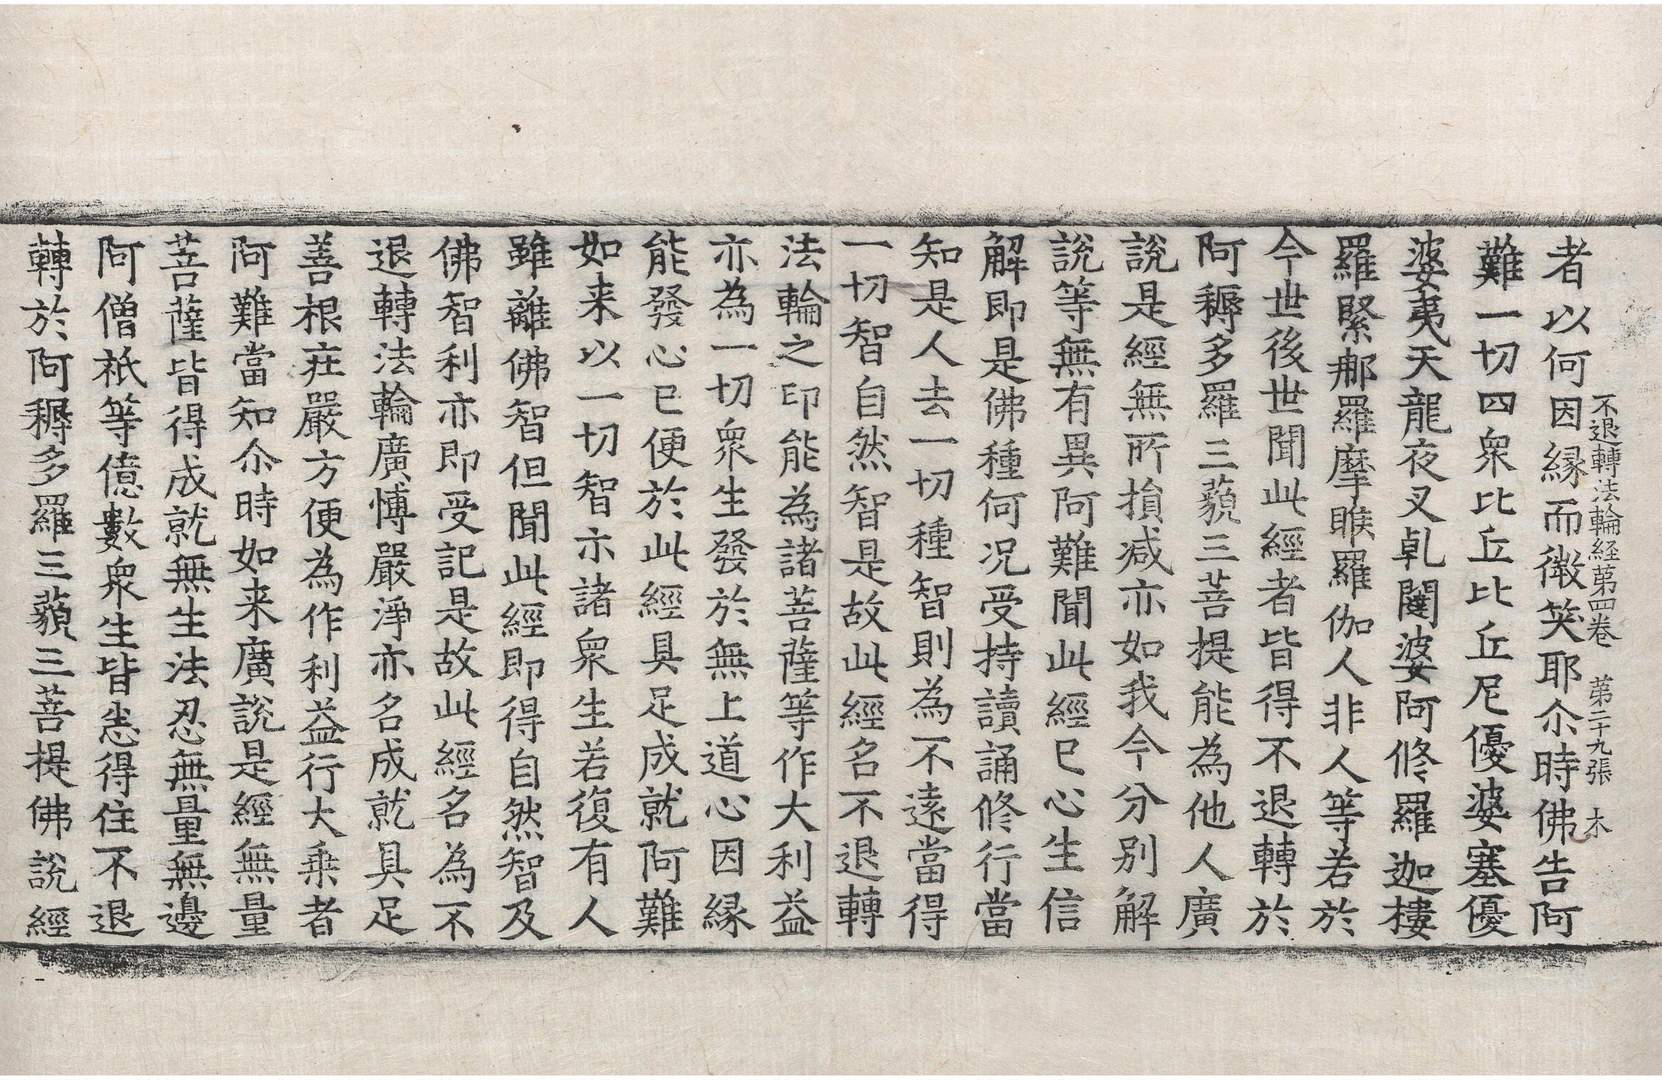 不退轉法輪経第四卷　第二十九張　木
者以何因縁而微笑耶尒時佛告阿
難一切四衆比丘比丘尼優婆塞優
婆夷天龍夜叉乹闥婆阿修羅迦樓
羅緊那羅摩睺羅伽人非人等若於
今世後世聞此經者皆得不退轉於
阿耨多羅三藐三菩提能為他人廣
說是經無所損减亦如我今分別解
說等無有異阿難聞此經已心生信
解即是佛種何况受持讀誦修行當
知是人去一切種智則為不遠當得
一切智自然智是故此經名不退轉
法輪之印能為諸菩薩等作大利益
亦為一切衆生發於無上道心因縁
能發心已便於此經具足成就阿難
如来以一切智示諸衆生若復有人
雖離佛智但聞此經即得自然智及
佛智利亦即受記是故此經名為不
退轉法輪廣愽嚴淨亦名成就具足
善根庄嚴方便為作利益行大乗者
阿難當知尒時如来廣說是經無量
菩薩皆得成就無生法忍無量無邊
阿僧祇等億數衆生皆悉得住不退
轉於阿耨多羅三藐三菩提佛說經